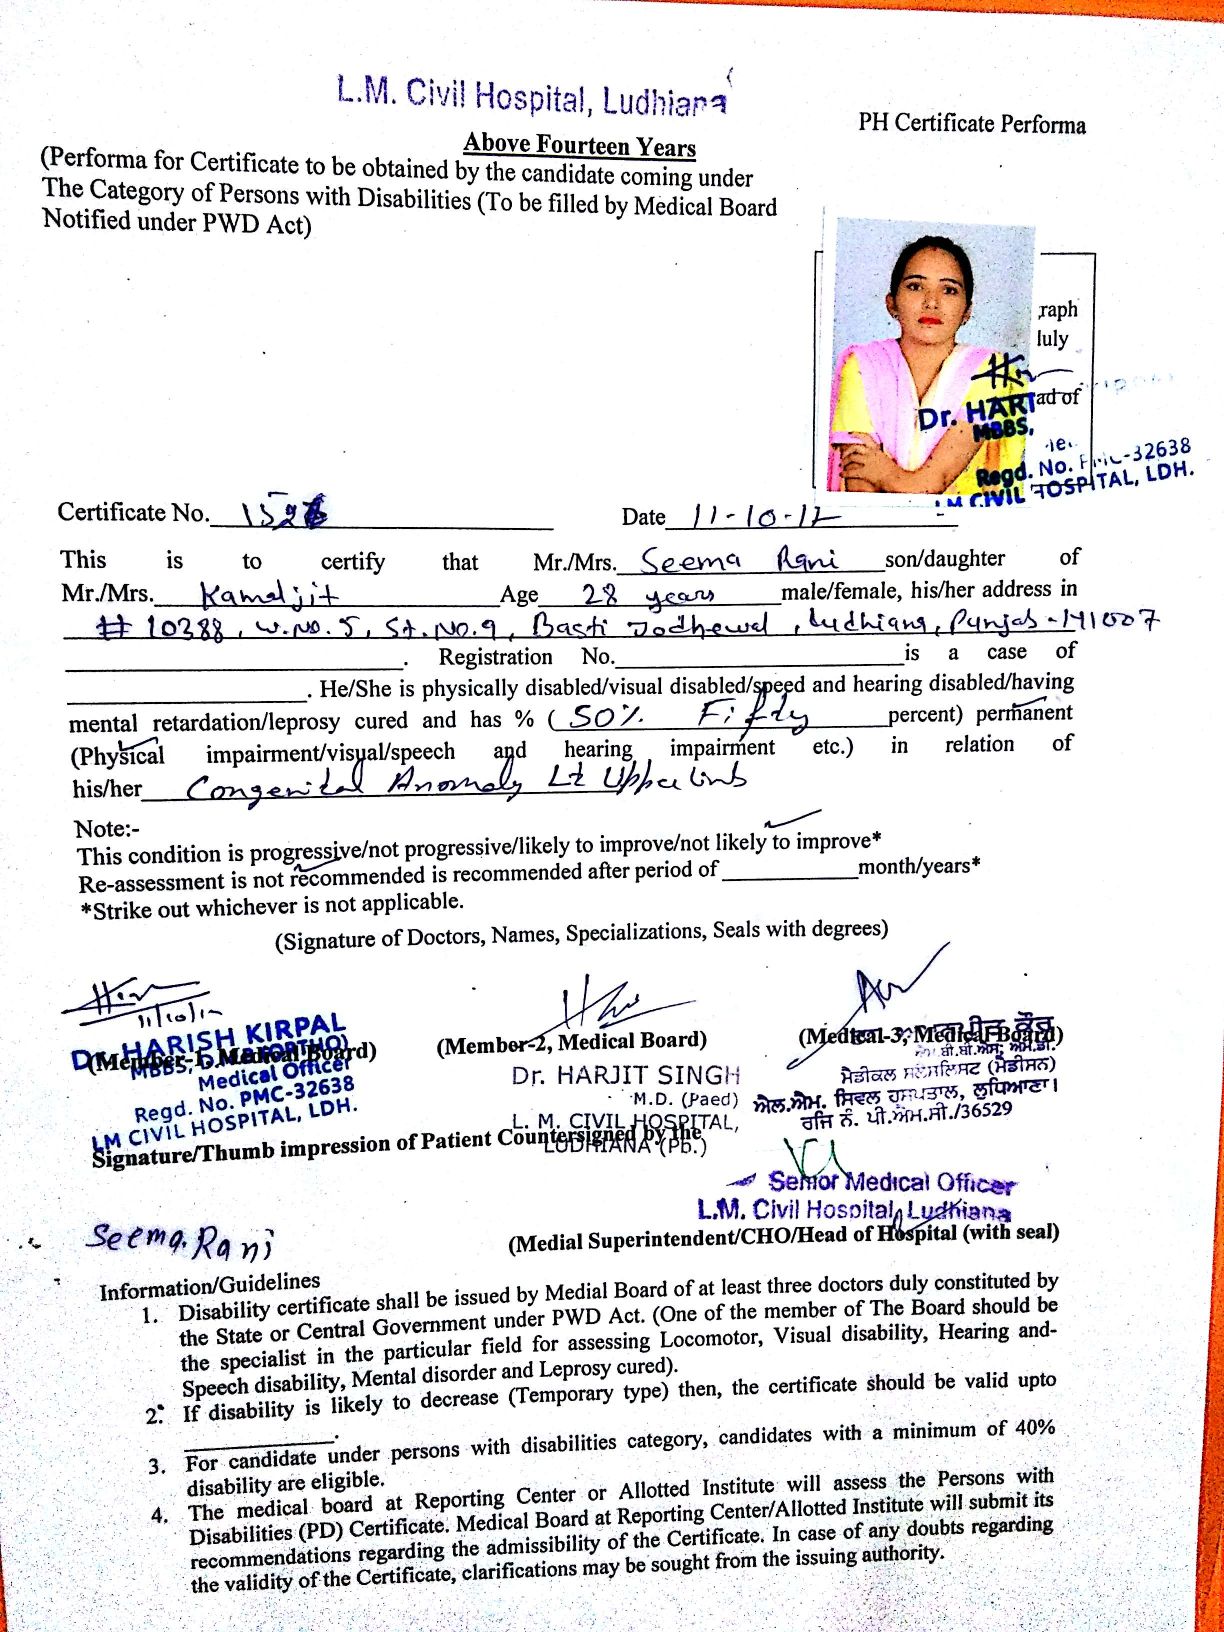 L.M. Civil Hospital, Ludhiana
PH Certificate Performa
Above Fourteen Years
(Performa for Certificate to be obtained by the candidate coming under
The Category of Persons with Disabilities (To be filled by Medical Board
Notified under PWD Act)
raph
luly
ad of
Dr. HARI
MBBS,
Regd. No. PMC-32638
LM CIVIL HOSPITAL, LDH.
Certificate No. Date 11-10-12
This is to certify that Mr./Mrs. Seema Rani son/daughter of
Mr./Mrs. Kamaljit Age 28 years male/female, his/her address in
# 10388, W.No. 5, St. No. 9, Basti Jodhewal, Ludhiana, Punjab-141007
. Registration No. is a case of
. He/She is physically disabled/visual disabled/speed and hearing disabled/having
mental retardation/leprosy cured and has % (50% Fifty percent) permanent
(Physical impairment/visual/speech and hearing impairment etc.) in relation of
his/her Congenital Anomaly Lt Upper limb
Note:-
This condition is progressive/not progressive/likely to improve/not likely to improve*
Re-assessment is not recommended is recommended after period of month/years*
*Strike out whichever is not applicable.
(Signature of Doctors, Names, Specializations, Seals with degrees)
11/10/12
Dr. HARISH KIRPAL
(Member-1, Medical Board)
MBBS, D.N.B(ORTHO)
Medical Officer
Regd. No. PMC-32638
LM CIVIL HOSPITAL, LDH.
(Member-2, Medical Board)
Dr. HARJIT SINGH
M.D. (Paed)
L. M. CIVIL HOSPITAL,
LUDHIANA (Pb.)
(Medical-3, Medical Board)
ਐਮ.ਬੀ.ਬੀ.ਐਸ; ਐਮ.ਡੀ.
ਮੈਡੀਕਲ ਸਪੈਸਲਿਸਟ (ਮੈਡੀਸਨ)
ਐਲ.ਐਮ. ਸਿਵਲ ਹਸਪਤਾਲ, ਲੁਧਿਆਣਾ।
ਰਜਿ ਨੰ. ਪੀ.ਐਮ.ਸੀ./36529
Signature/Thumb impression of Patient Countersigned by the
Senior Medical Officer
L.M. Civil Hospital, Ludhiana
Seema Rani
(Medial Superintendent/CHO/Head of Hospital (with seal)
Information/Guidelines
1. Disability certificate shall be issued by Medial Board of at least three doctors duly constituted by
the State or Central Government under PWD Act. (One of the member of The Board should be
the specialist in the particular field for assessing Locomotor, Visual disability, Hearing and-
Speech disability, Mental disorder and Leprosy cured).
2. If disability is likely to decrease (Temporary type) then, the certificate should be valid upto
.
3. For candidate under persons with disabilities category, candidates with a minimum of 40%
disability are eligible.
4. The medical board at Reporting Center or Allotted Institute will assess the Persons with
Disabilities (PD) Certificate. Medical Board at Reporting Center/Allotted Institute will submit its
recommendations regarding the admissibility of the Certificate. In case of any doubts regarding
the validity of the Certificate, clarifications may be sought from the issuing authority.